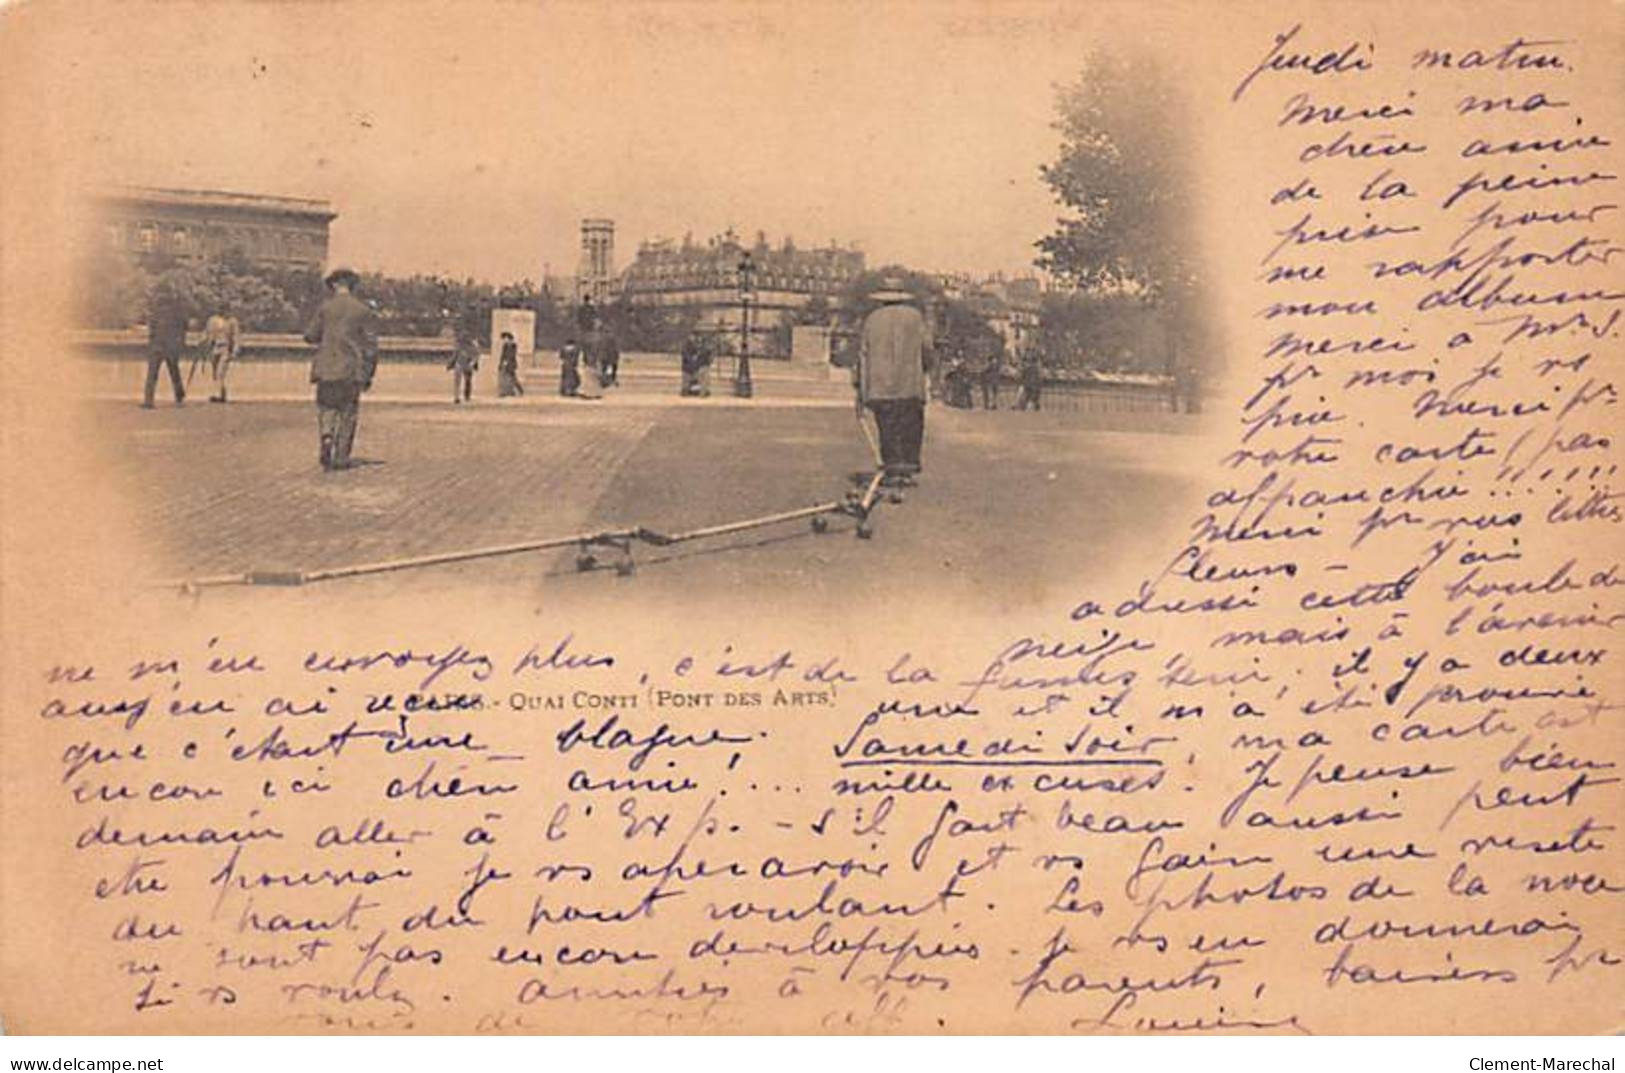 Jeudi matin.
Merci ma
chère amie
de la peine
prise pour
me rapporter
mon album
Merci à Mr S.
pr moi je vs
prie. Merci pr
votre carte (pas
affranchie !!!!!!
Merci pr vos littles
fleurs – J'ai
adressé cette boule de
neige, mais à l'avenir
ne m'en envoyez plus, c'est de la
il y a deux
j'en ai reçu une et il m'a été prouvé
PARIS. - QUAI CONTI (PONT DES ARTS)
que c'était une blague. Samedi soir, ma carte est
encore ici chère amie !... mille excuses. Je pense bien
demain aller à l'Exp. – S'il fait beau aussi peut
être pourrai je vs apercevoir et vs faire une risette
du haut du pont roulant. Les photos de la noce
ne sont pas encore développées. Je vs en donnerai
si vs voulez. Amitiés à vos parents, baisers pr
vous de votre aff.
Clement-Marechal
delcampe.net